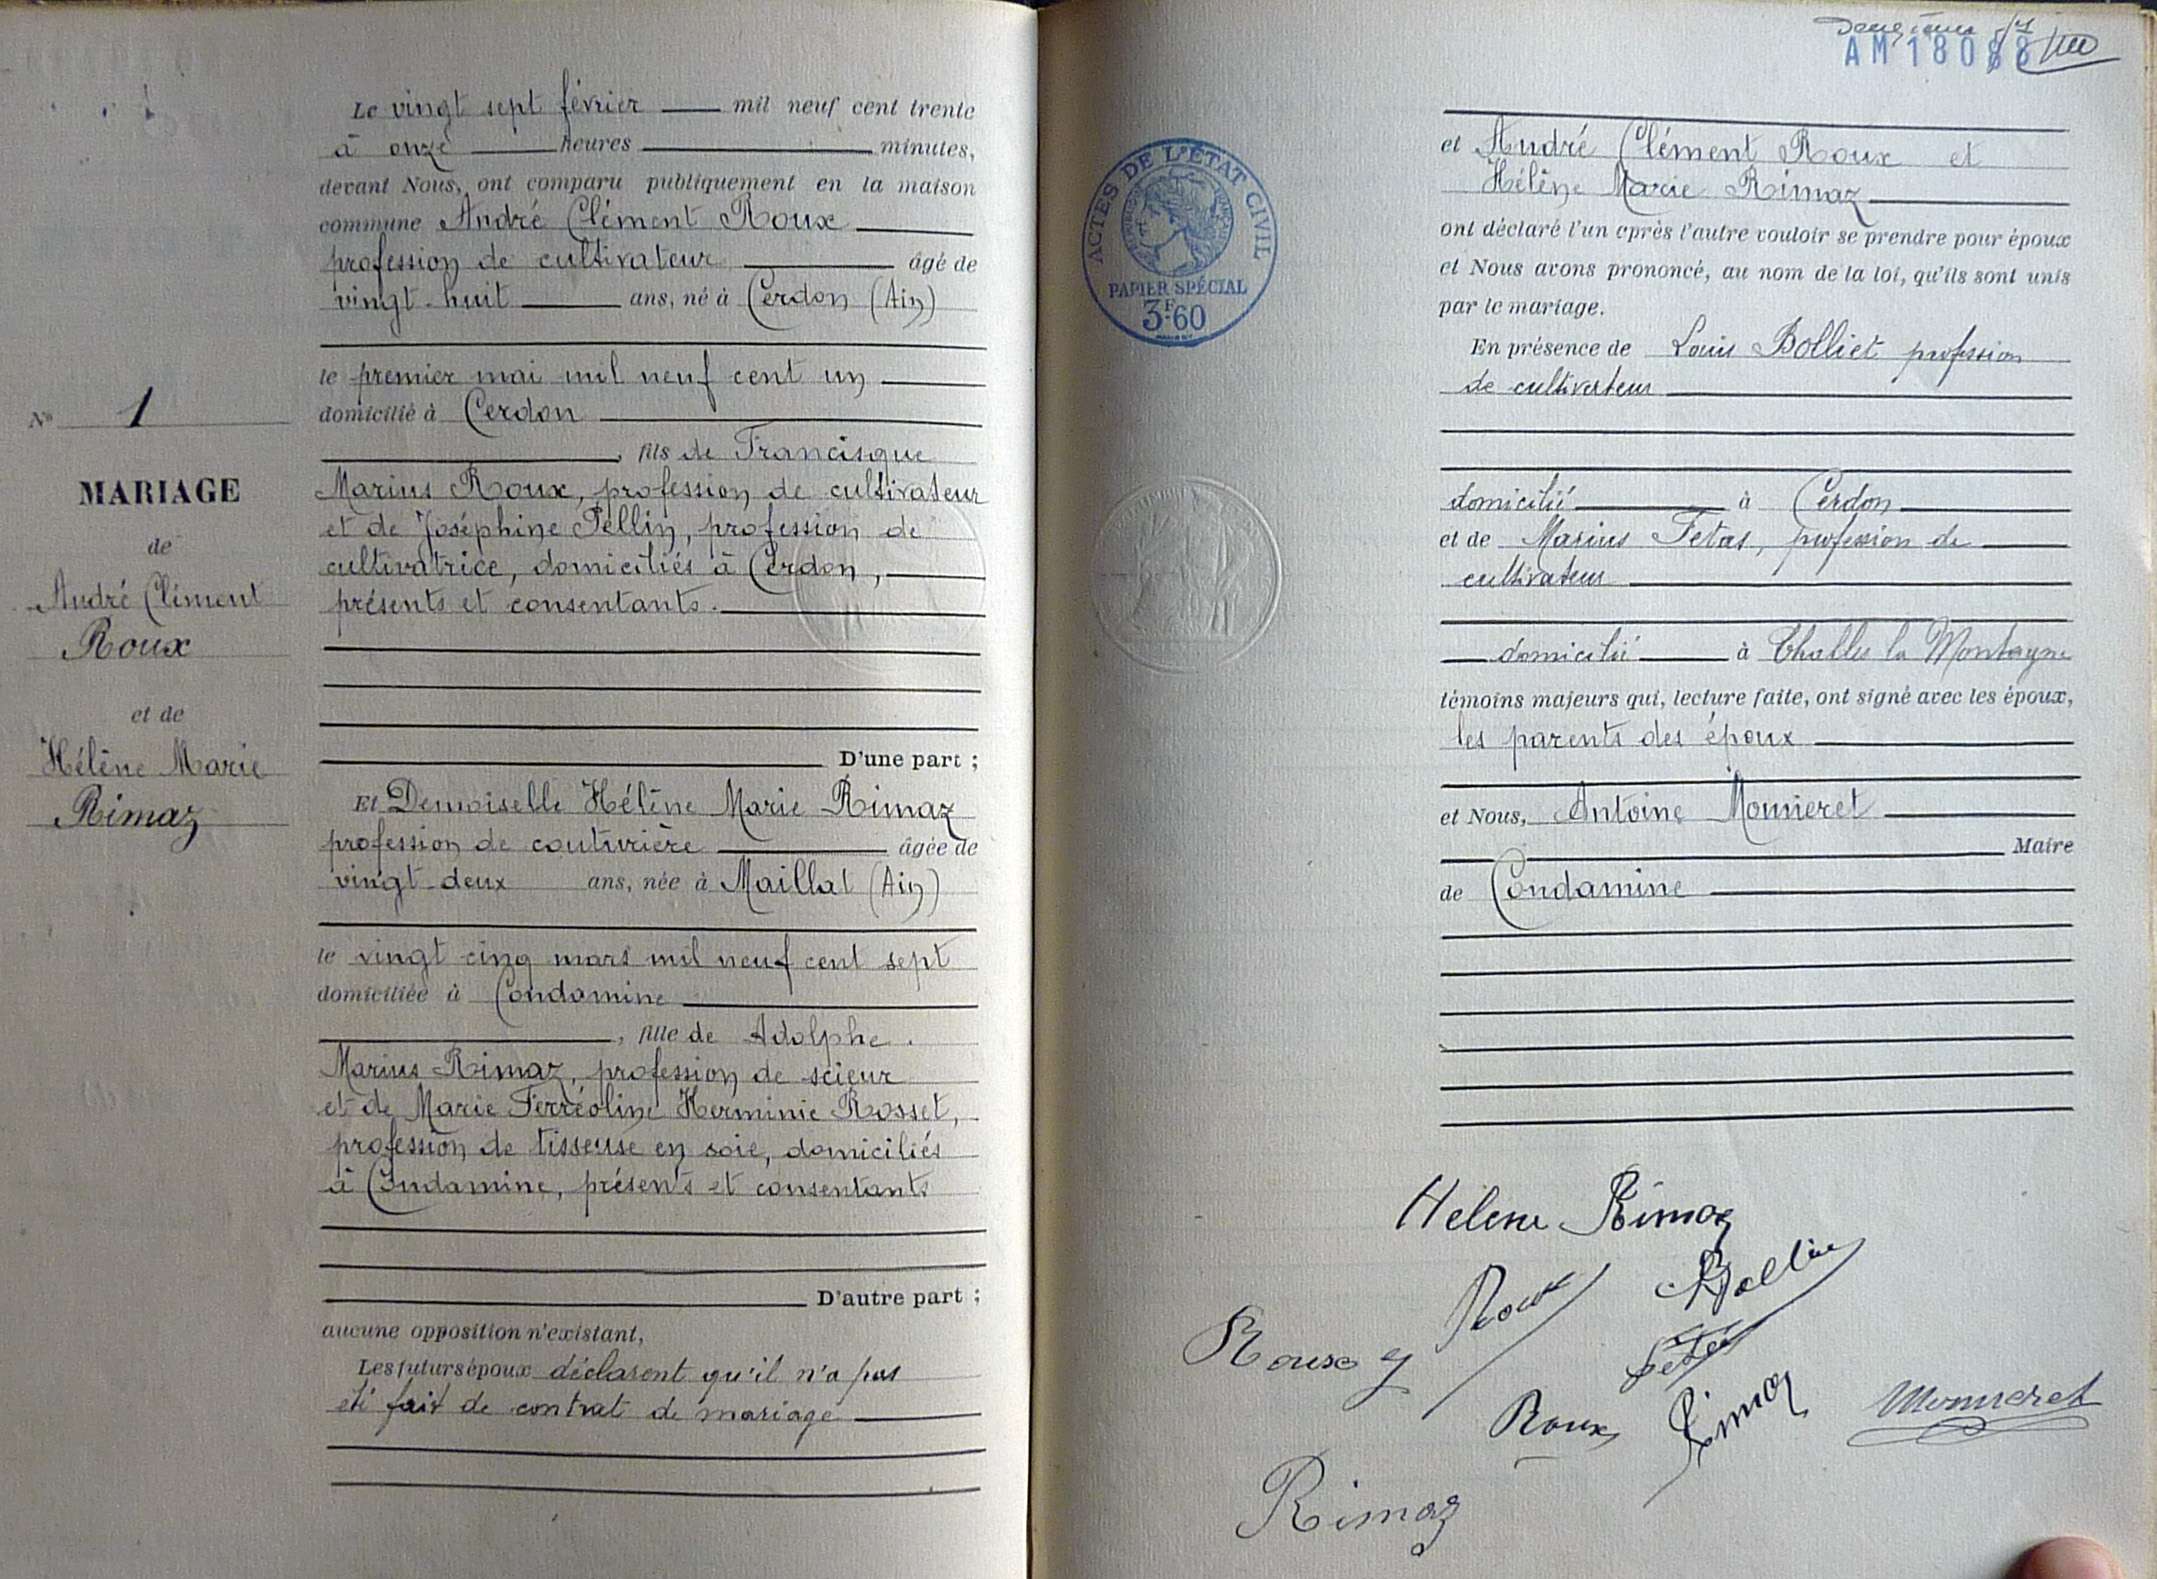 Le vingt sept février mil neuf cent trente
à onze heures minutes,
devant Nous, ont comparu publiquement en la maison
commune André Clément Roux
profession de cultivateur âgé de
vingt-huit ans, né à Cerdon (Ain)
le premier mai mil neuf cent un
domicilié à Cerdon
, fils de Francisque
Marius Roux, profession de cultivateur
et de Joséphine Pellin, profession de
cultivatrice, domiciliés à Cerdon,
présents et consentants.
D'une part ;
Et Demoiselle Hélène Marie Rimaz
profession de couturière âgée de
vingt-deux ans, née à Maillat (Ain)
le vingt cinq mars mil neuf cent sept
domiciliée à Condamine
, fille de Adolphe
Marius Rimaz, profession de scieur
et de Marie Ferréoline Herminie Rosset,
profession de tisseuse en soie, domiciliés
à Condamine, présents et consentants
D'autre part ;
aucune opposition n'existant,
Les futurs époux déclarent qu'il n'a pas
été fait de contrat de mariage
No 1
MARIAGE
de
André Clément
Roux
et de
Hélène Marie
Rimaz
AM 180
ACTES DE L'ÉTAT CIVIL
PAPIER SPÉCIAL
3F.60
et André Clément Roux et
Hélène Marie Rimaz
ont déclaré l'un après l'autre vouloir se prendre pour époux
et Nous avons prononcé, au nom de la loi, qu'ils sont unis
par le mariage.
En présence de Louis Bolliet profession
de cultivateur
domicilié à Cerdon
et de Marius Fetas, profession de
cultivateur
domicilié à Challes la Montagne
témoins majeurs qui, lecture faite, ont signé avec les époux,
les parents des époux
et Nous, Antoine Monneret
Maire
de Condamine
Helene Rimaz
Roux
Roux
Roux
Rimaz
Monneret
Rimaz